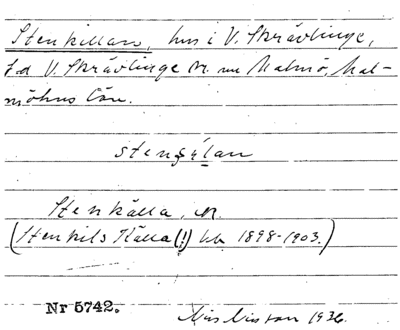 Stenkillan, hus i V. Skrävlinge,
f.d V. Skrävlinge sn. nu Malmö, Mal-
möhus län.
Stenkälla, n.
(Stenkils Källa(!) kb 1898-1903.)
Nr 5742.
Nils Nilsson 1936.